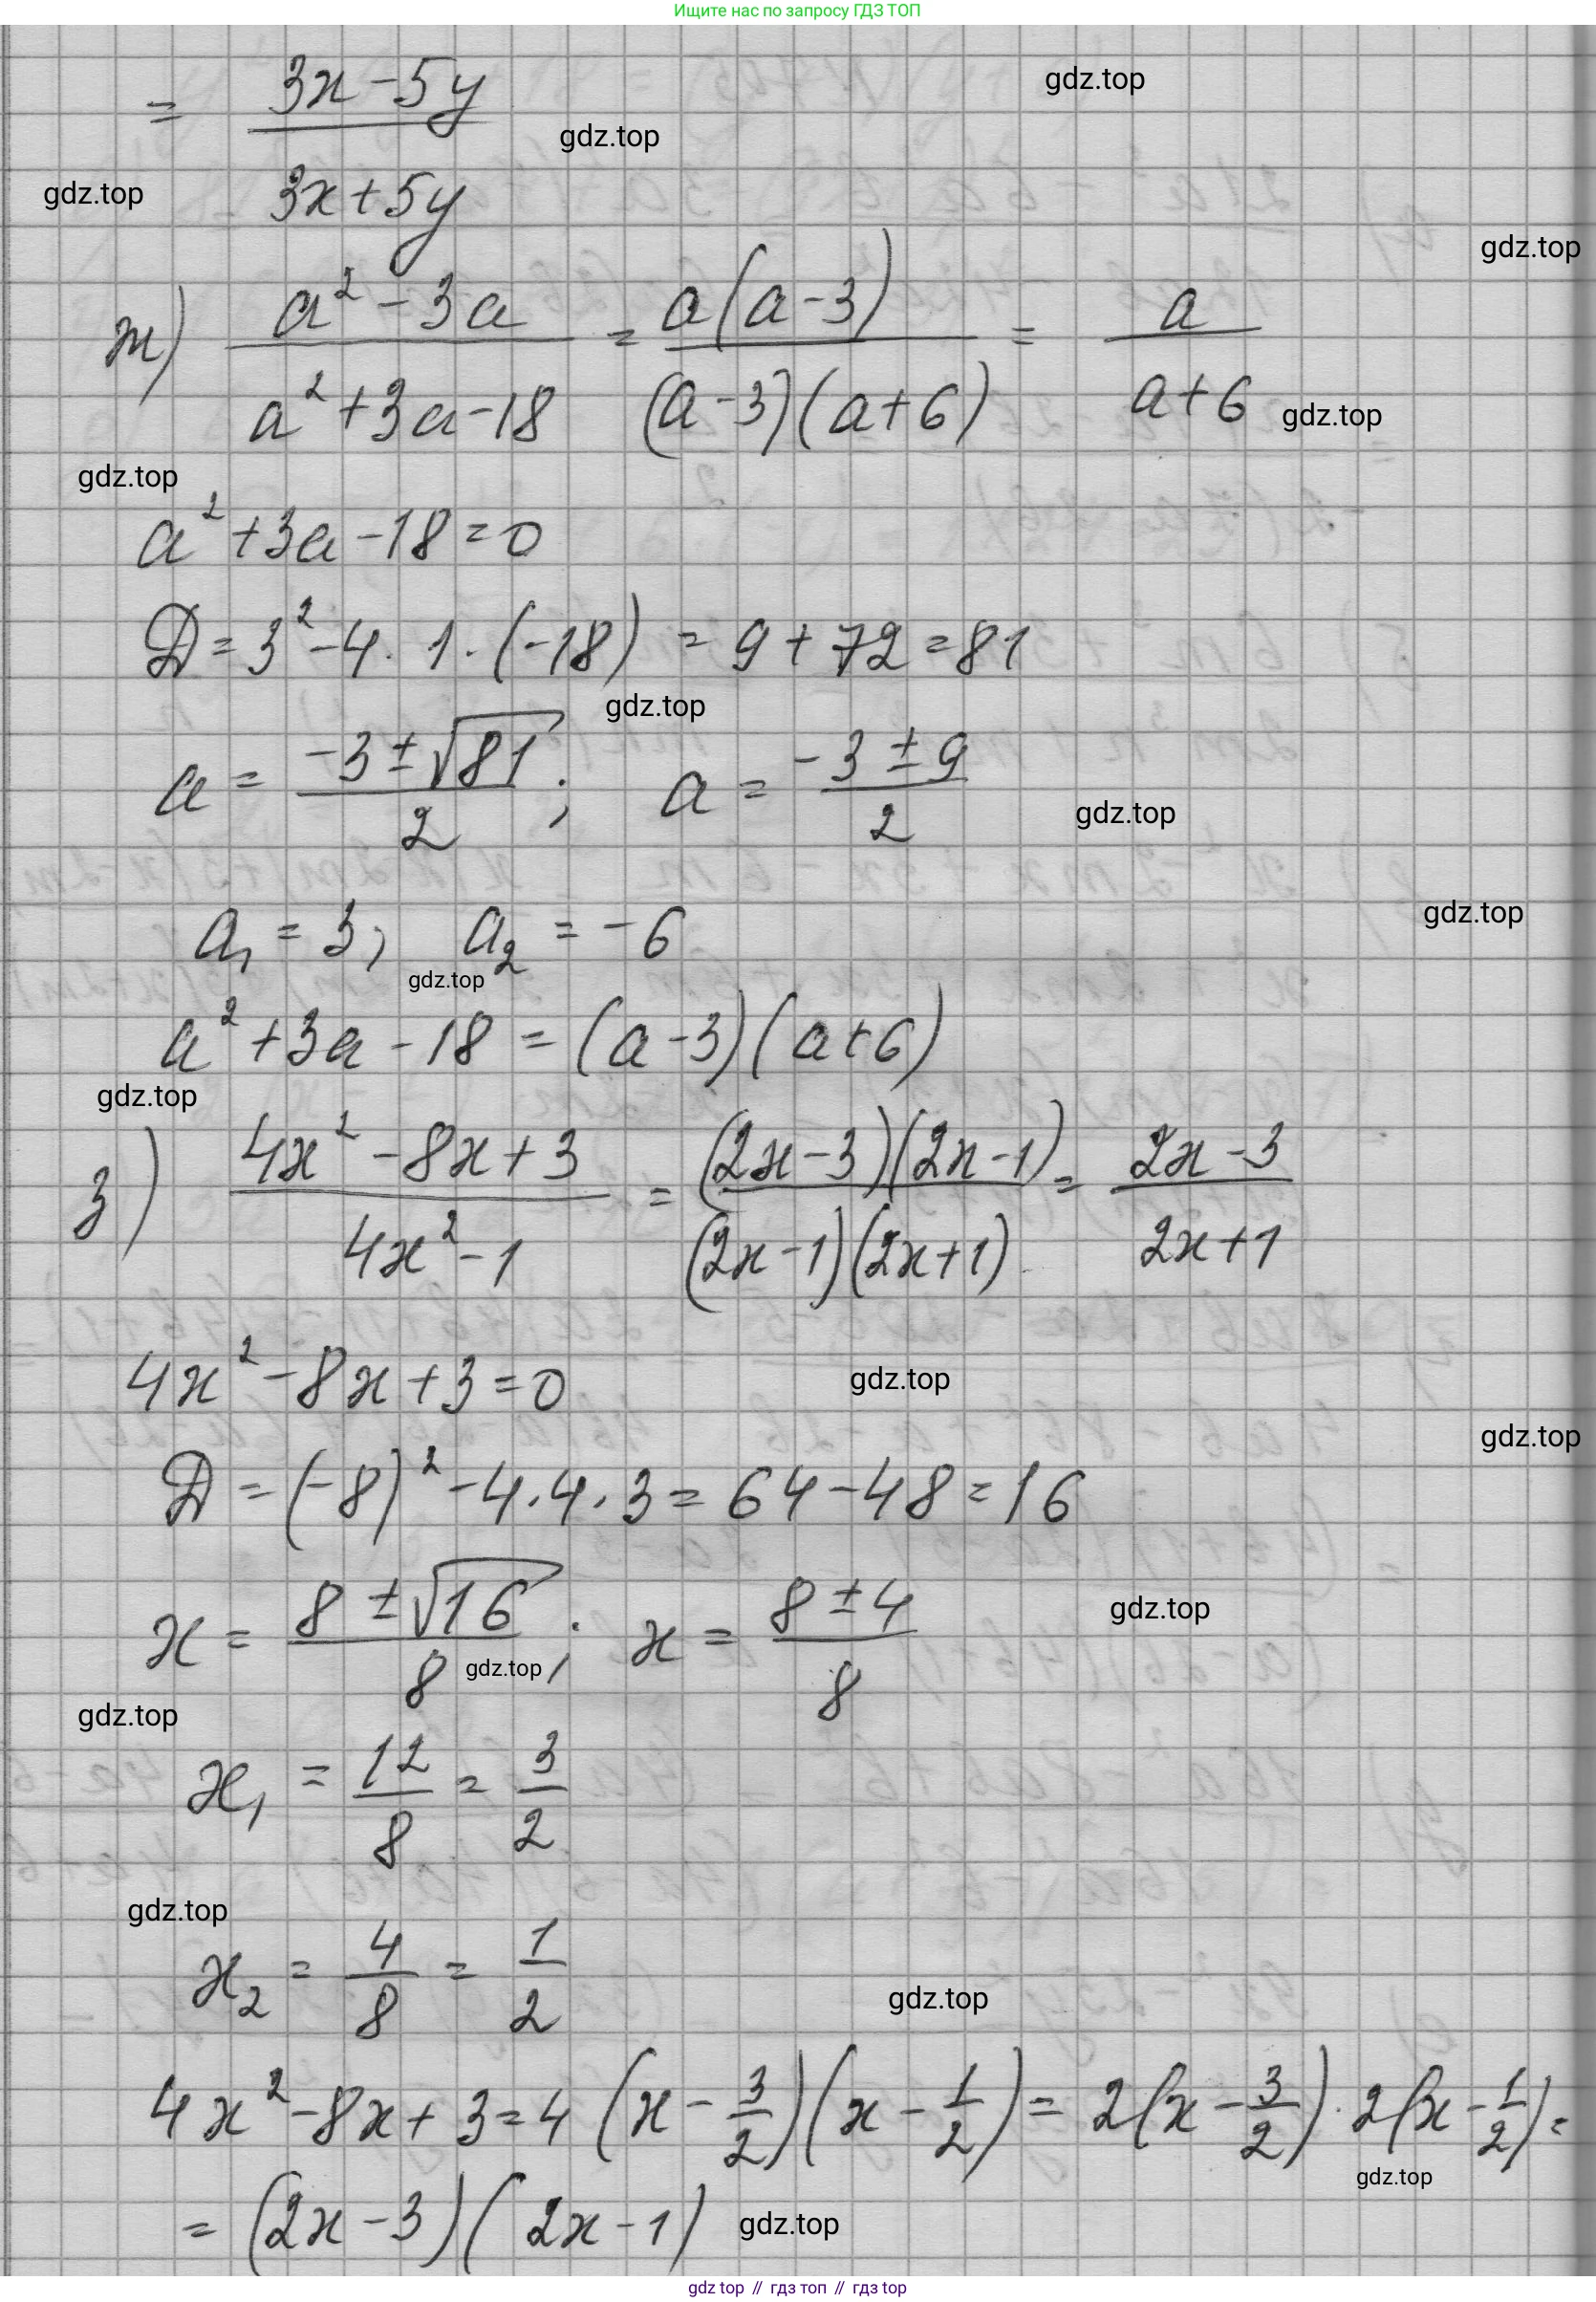 Ищите нас по запросу ГДЗ ТОП
= (3x - 5y)/(3x + 5y)
gdz.top
gdz.top
gdz.top
gdz.top
ж) (a² - 3a)/(a² + 3a - 18) = a(a - 3)/((a - 3)(a + 6)) = a/(a + 6)
gdz.top
gdz.top
a² + 3a - 18 = 0
D = 3² - 4 · 1 · (-18) = 9 + 72 = 81
gdz.top
a = (-3 ± √81)/2 ; a = (-3 ± 9)/2
gdz.top
gdz.top
a₁ = 3, a₂ = -6
gdz.top
a² + 3a - 18 = (a - 3)(a + 6)
gdz.top
з) (4x² - 8x + 3)/(4x² - 1) = ((2x - 3)(2x - 1))/((2x - 1)(2x + 1)) = (2x - 3)/(2x + 1)
4x² - 8x + 3 = 0
gdz.top
gdz.top
D = (-8)² - 4 · 4 · 3 = 64 - 48 = 16
x = (8 ± √16)/8 ; x = (8 ± 4)/8
gdz.top
gdz.top
gdz.top
x₁ = 12/8 = 3/2
gdz.top
x₂ = 4/8 = 1/2
gdz.top
4x² - 8x + 3 = 4(x - 3/2)(x - 1/2) = 2(x - 3/2) · 2(x - 1/2) =
gdz.top
= (2x - 3)(2x - 1)
gdz.top
gdz top // гдз топ // гдз top